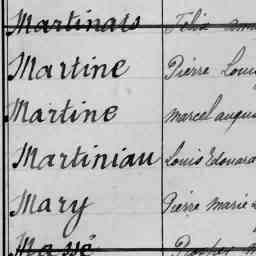 Martinais Félix
Martine Pierre Loui
Martine Marcel augu
Martiniau Louis Edouard
Mary Pierre Marie
Massé